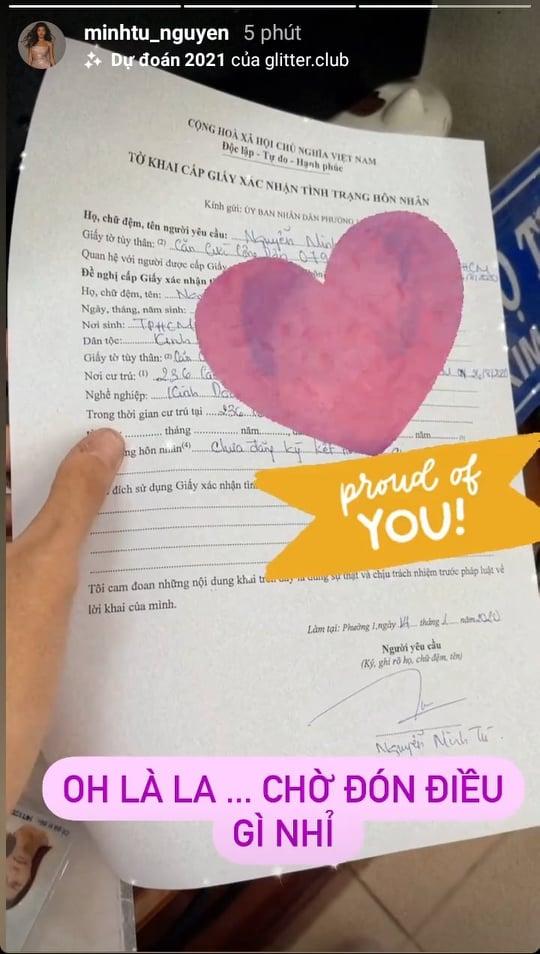 minhtu_nguyen 5 phút
Dự đoán 2021 của glitter.club
CỘNG HOÀ XÃ HỘI CHỦ NGHĨA VIỆT NAM
Độc lập - Tự do - Hạnh phúc
TỜ KHAI CẤP GIẤY XÁC NHẬN TÌNH TRẠNG HÔN NHÂN
Kính gửi: ỦY BAN NHÂN DÂN PHƯỜNG
Họ, chữ đệm, tên người yêu cầu: Nguyễn Minh
Giấy tờ tùy thân: (2) Căn Cước Công Dân 079
Quan hệ với người được cấp Giấy
Đề nghị cấp Giấy xác nhận
Họ, chữ đệm, tên:
Ngày, tháng, năm sinh:
Nơi sinh: TPHCM
Dân tộc: Kinh
Giấy tờ tùy thân: (2) Căn
Nơi cư trú: (1) 236
Nghề nghiệp: Kinh
Trong thời gian cư trú tại 236
tháng năm năm
nhân (4) Chưa đăng ký kết
đích sử dụng Giấy xác nhận
proud of
YOU!
Tôi cam đoan những nội dung khai sự thật và chịu trách nhiệm trước pháp luật về
lời khai của mình.
Làm tại: Phường 1, ngày tháng năm 2020
Người yêu cầu
(Ký, ghi rõ họ, chữ đệm, tên)
Nguyễn Minh Tú
OH LÀ LA ... CHỜ ĐÓN ĐIỀU
GÌ NHỈ